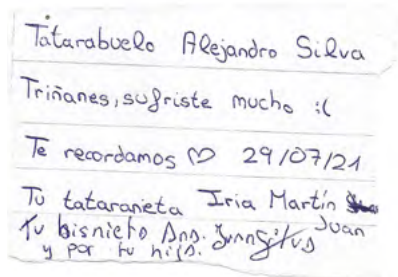 Tatarabuelo Alejandro Silva
Triñanes, sufriste mucho :(
Te recordamos ♡ 29/07/21
Tu tataranieta Iria Martín
Tu bisnieto Juan
y por tu hijo.